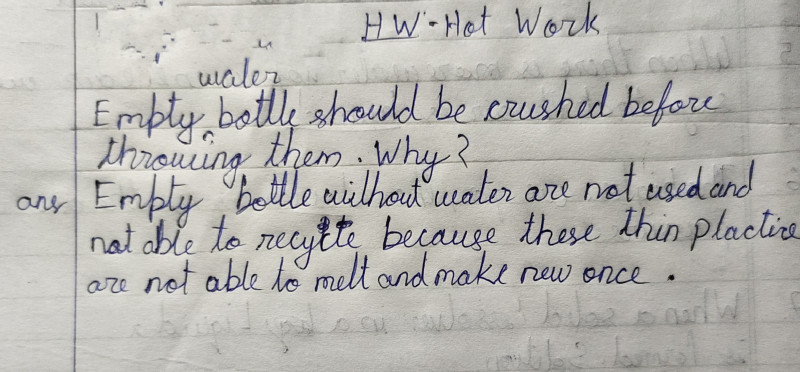 HW - Hot Work
water
Empty ^ bottle should be crushed before
throwing them. Why?
ans Empty bottle without water are not used and
not able to recytte because these thin plactice
are not able to melt and make new once.